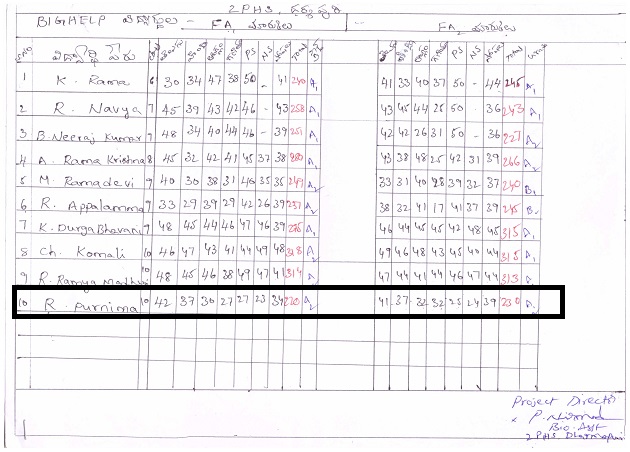 ZPHS. ధర్మపురి
BIGHELP విద్యార్థులు - FA మార్కులు - FA మార్కులు
విద్యార్థి పేరు PS NS Total PS NS Total
1 K. Rama 6 30 34 47 38 50 - 41 240 A1 41 33 40 37 50 - 44 245 A1
2 R. Navya 7 45 39 43 42 46 - 43 258 A1 43 45 44 26 50 - 36 243 A1
3 B. Neeraj Kumar 7 48 34 40 44 46 - 39 251 A1 42 42 26 31 50 - 36 227 A2
4 A. Rama Krishna 8 45 32 42 41 45 37 38 280 A2 43 38 48 25 42 31 39 266 A2
5 M. Ramadevi 9 40 30 38 31 40 35 35 249 A2 33 31 40 28 39 32 37 240 B1
6 R. Appalamma 9 33 29 39 29 42 26 39 237 A2 38 32 41 17 41 37 39 245
7 K. Durga Bhavani 9 48 45 44 46 47 46 39 275 A1 46 44 45 45 42 48 45 315 A1
8 Ch. Komali 10 46 47 43 41 44 49 48 318 A1 49 46 48 43 45 40 44 315 A1
9 R. Ramya Madhuri 10 48 45 46 38 49 47 41 314 A1 47 44 41 44 46 47 44 313 A1
10 R. Purnima 10 42 37 30 27 27 23 34 220 A2 41 37 32 32 25 24 39 230
Project Directr
Bio. Asst
ZPHS Dharmapuri